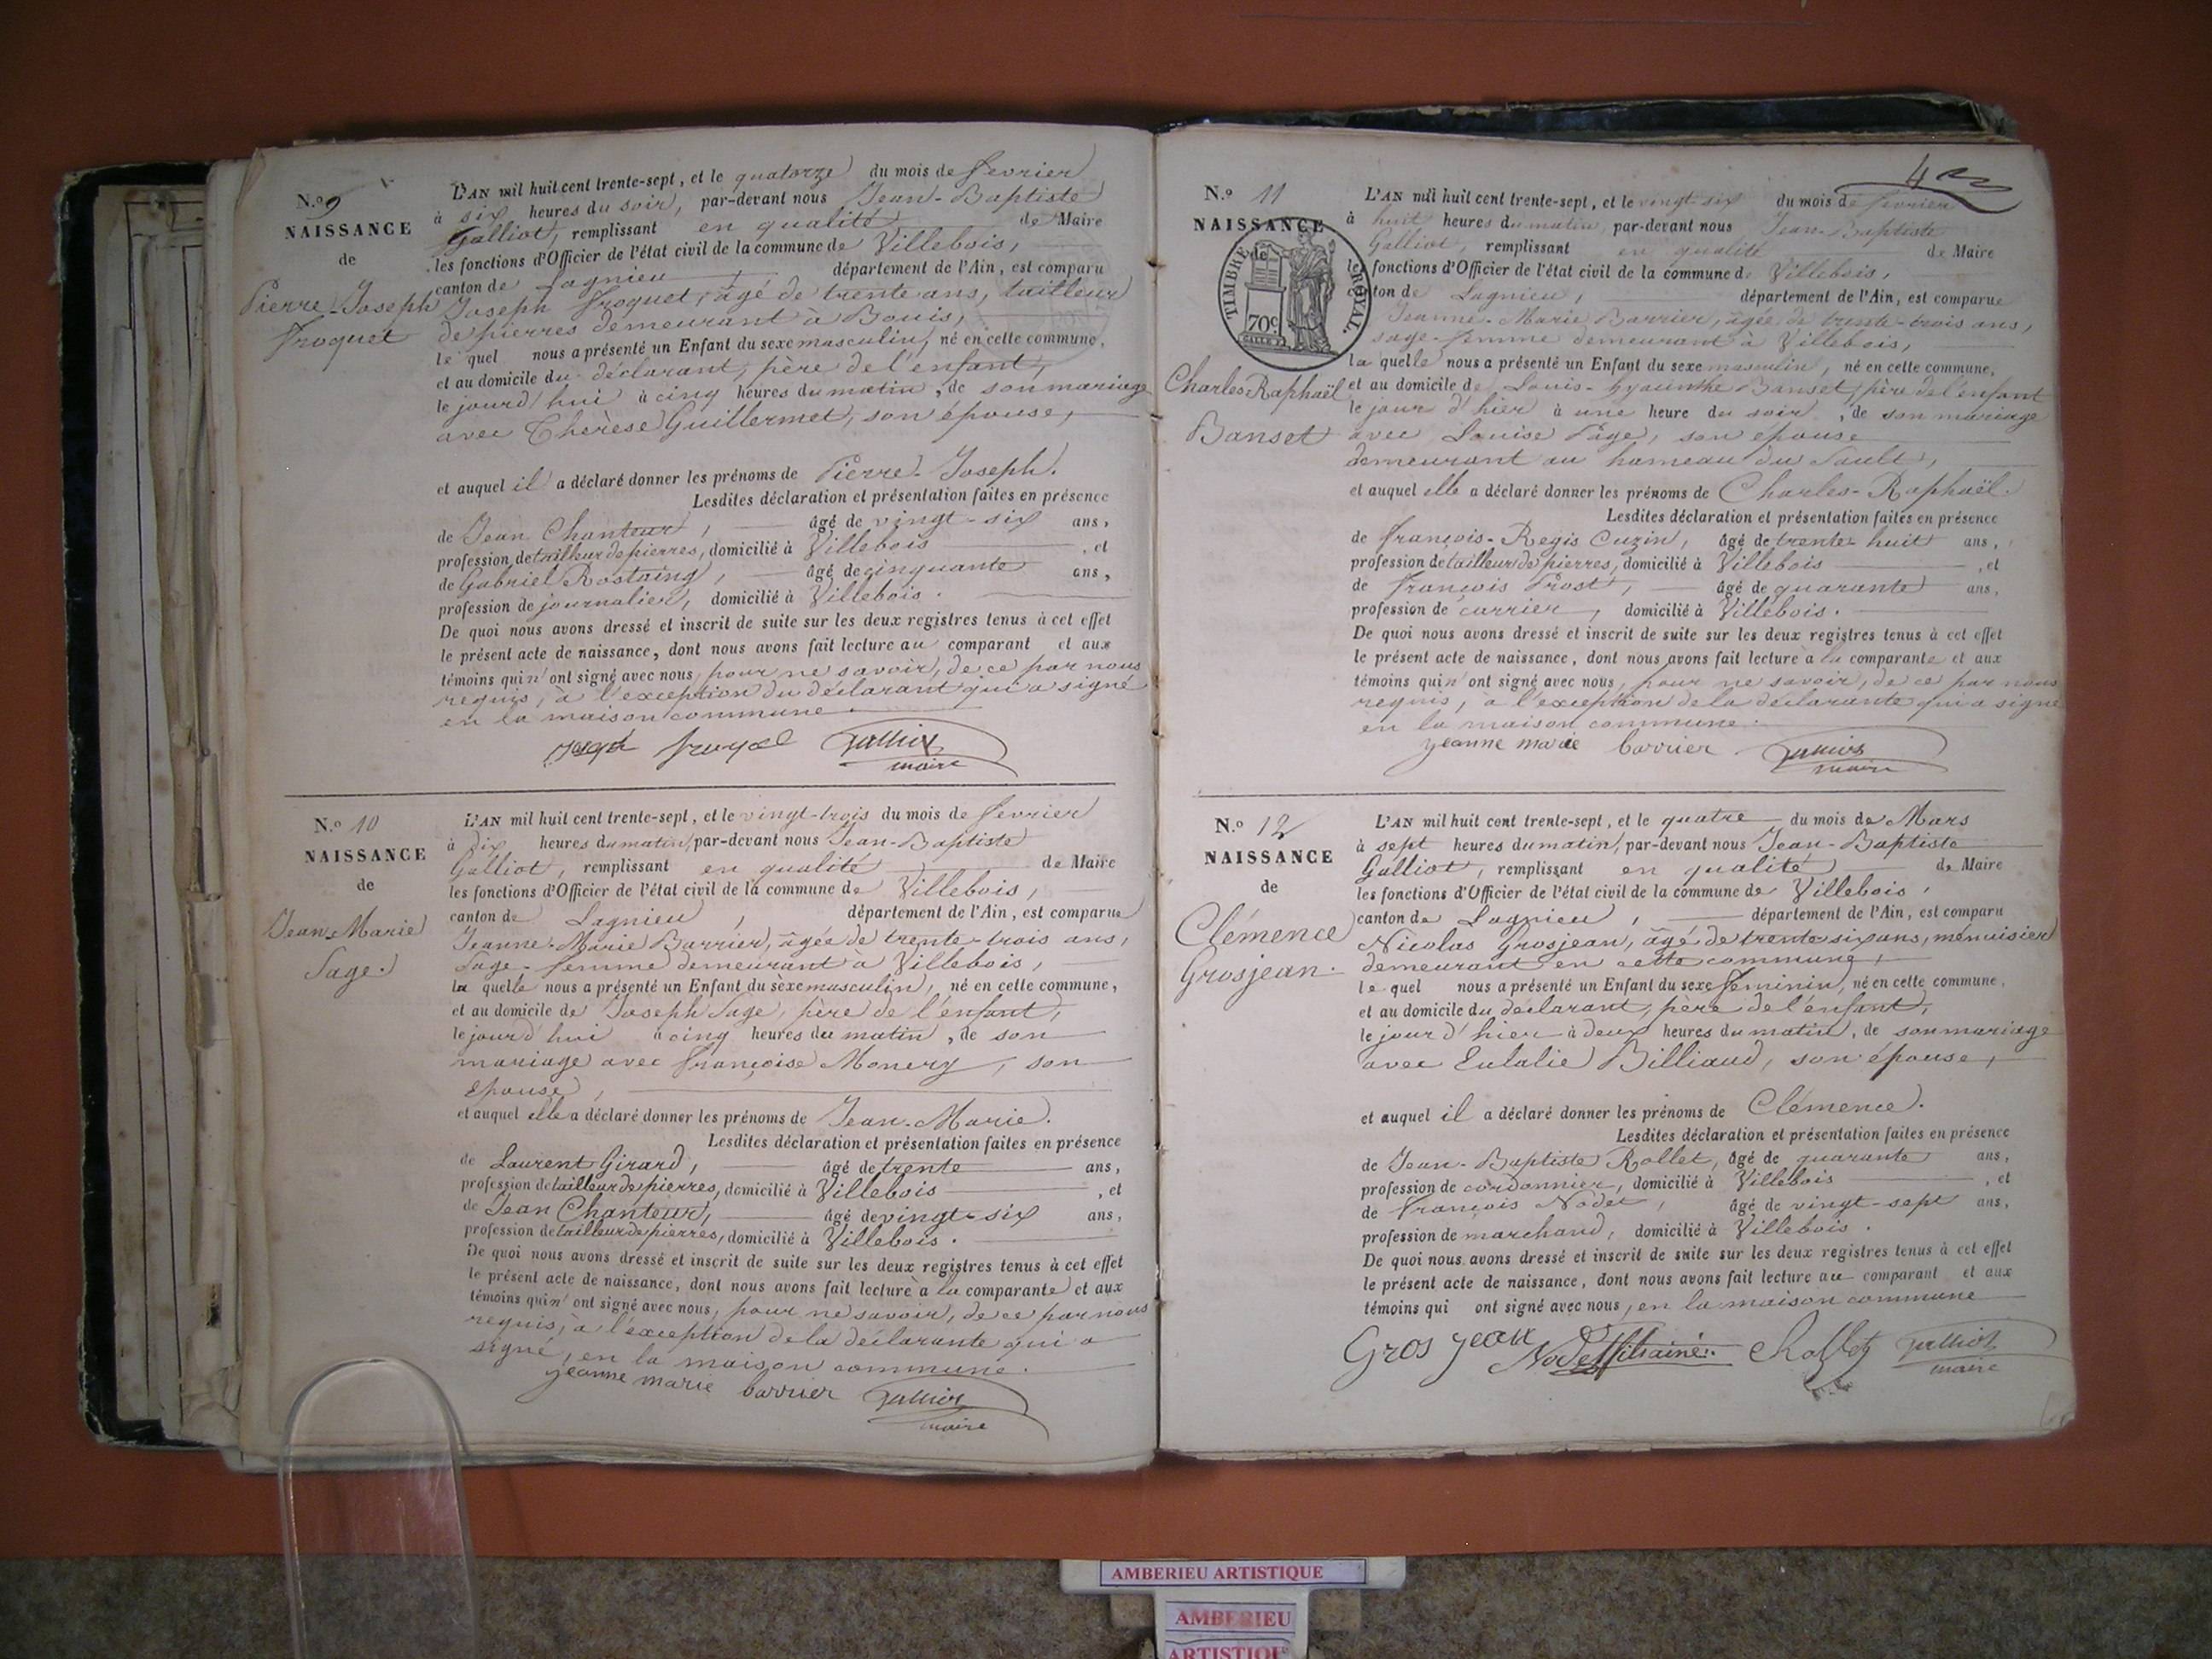 N.º 9
NAISSANCE
de
Pierre-Joseph
Froquet
L'AN mil huit cent trente-sept, et le quatorze du mois de fevrier
à six heures du soir, par-devant nous Jean-Baptiste
Galliot, remplissant en qualité de Maire
les fonctions d'Officier de l'état civil de la commune de Villebois,
canton de Lagnieu département de l'Ain, est comparu
Joseph Froquet, âgé de trente ans, tailleur
de pierres demeurant à Bouis,
le quel nous a présenté un Enfant du sexe masculin, né en cette commune,
et au domicile du déclarant, père de l'enfant,
le jourd'hui à cinq heures du matin, de son mariage
avec Thérèse Guillermet, son épouse,
et auquel il a déclaré donner les prénoms de Pierre-Joseph.
Lesdites déclaration et présentation faites en présence
de Jean Chanteur, âgé de vingt-six ans,
profession de tailleur de pierres, domicilié à Villebois, et
de Gabriel Rostaing, âgé de cinquante ans,
profession de journalier, domicilié à Villebois.
De quoi nous avons dressé et inscrit de suite sur les deux registres tenus à cet effet
le présent acte de naissance, dont nous avons fait lecture au comparant et aux
témoins qui n'ont signé avec nous, pour ne savoir, de ce par nous
requis, à l'exception du déclarant qui a signé
en la maison commune.
Galliot
maire
N.º 10
NAISSANCE
de
Jean-Marie
Sage.
L'AN mil huit cent trente-sept, et le vingt-trois du mois de fevrier
à dix heures du matin, par-devant nous Jean-Baptiste
Galliot, remplissant en qualité de Maire
les fonctions d'Officier de l'état civil de la commune de Villebois,
canton de Lagnieu, département de l'Ain, est comparue
Jeanne-Marie Barrier, âgée de trente-trois ans,
sage-femme demeurant à Villebois,
la quelle nous a présenté un Enfant du sexe masculin, né en cette commune,
et au domicile de Joseph Sage, père de l'enfant,
le jourd'hui à cinq heures du matin, de son
mariage avec Françoise Monery, son
épouse,
et auquel elle a déclaré donner les prénoms de Jean-Marie.
Lesdites déclaration et présentation faites en présence
de Laurent Girard, âgé de trente ans,
profession de tailleur de pierres, domicilié à Villebois, et
de Jean Chanteur, âgé de vingt-six ans,
profession de tailleur de pierres, domicilié à Villebois.
De quoi nous avons dressé et inscrit de suite sur les deux registres tenus à cet effet
le présent acte de naissance, dont nous avons fait lecture à la comparante et aux
témoins qui n'ont signé avec nous, pour ne savoir, de ce par nous
requis, à l'exception de la déclarante qui a
signé, en la maison commune.
jeanne marie barrier Galliot
maire
4
N.º 11
NAISSANCE
TIMBRE ROYAL.
70c.
Charles-Raphaël
Banset
L'AN mil huit cent trente-sept, et le vingt-six du mois de fevrier
à huit heures du matin, par-devant nous Jean-Baptiste
Galliot, remplissant en qualité de Maire
fonctions d'Officier de l'état civil de la commune de Villebois,
ton de Lagnieu, département de l'Ain, est comparue
Jeanne-Marie Barrier, âgée de trente-trois ans,
sage-femme demeurant à Villebois,
la quelle nous a présenté un Enfant du sexe masculin, né en cette commune,
et au domicile de Louis-hyacinthe Banset, père de l'enfant
le jour d'hier à une heure du soir, de son mariage
avec Louise Page, son épouse
demeurant au hameau du Sault,
et auquel elle a déclaré donner les prénoms de Charles-Raphaël.
Lesdites déclaration et présentation faites en présence
de François-Regis Cuzin, âgé de trente-huit ans,
profession de tailleur de pierres, domicilié à Villebois, et
de François Prost, âgé de quarante ans,
profession de carrier, domicilié à Villebois.
De quoi nous avons dressé et inscrit de suite sur les deux registres tenus à cet effet
le présent acte de naissance, dont nous avons fait lecture à la comparante et aux
témoins qui n'ont signé avec nous, pour ne savoir, de ce par nous
requis, à l'exception de la déclarante qui a signé
en la maison commune.
jeanne marie barrier Galliot
maire
N.º 12
NAISSANCE
de
Clémence
Grosjean.
L'AN mil huit cent trente-sept, et le quatre du mois de Mars
à sept heures du matin, par-devant nous Jean-Baptiste
Galliot, remplissant en qualité de Maire
les fonctions d'Officier de l'état civil de la commune de Villebois,
canton de Lagnieu, département de l'Ain, est comparu
Nicolas Grosjean, âgé de trente-six ans, menuisier
demeurant en cette commune,
le quel nous a présenté un Enfant du sexe féminin, né en cette commune,
et au domicile du déclarant, père de l'enfant,
le jour d'hier à deux heures du matin, de son mariage
avec Eulalie Billiaud, son épouse,
et auquel il a déclaré donner les prénoms de Clémence.
Lesdites déclaration et présentation faites en présence
de Jean-Baptiste Rollet, âgé de quarante ans,
profession de cordonnier, domicilié à Villebois, et
de François Nodet, âgé de vingt-sept ans,
profession de marchand, domicilié à Villebois.
De quoi nous avons dressé et inscrit de suite sur les deux registres tenus à cet effet
le présent acte de naissance, dont nous avons fait lecture au comparant et aux
témoins qui ont signé avec nous, en la maison commune
Gros jean Rollet Galliot
maire
AMBERIEU ARTISTIQUE
AMBERIEU
ARTISTIQUE